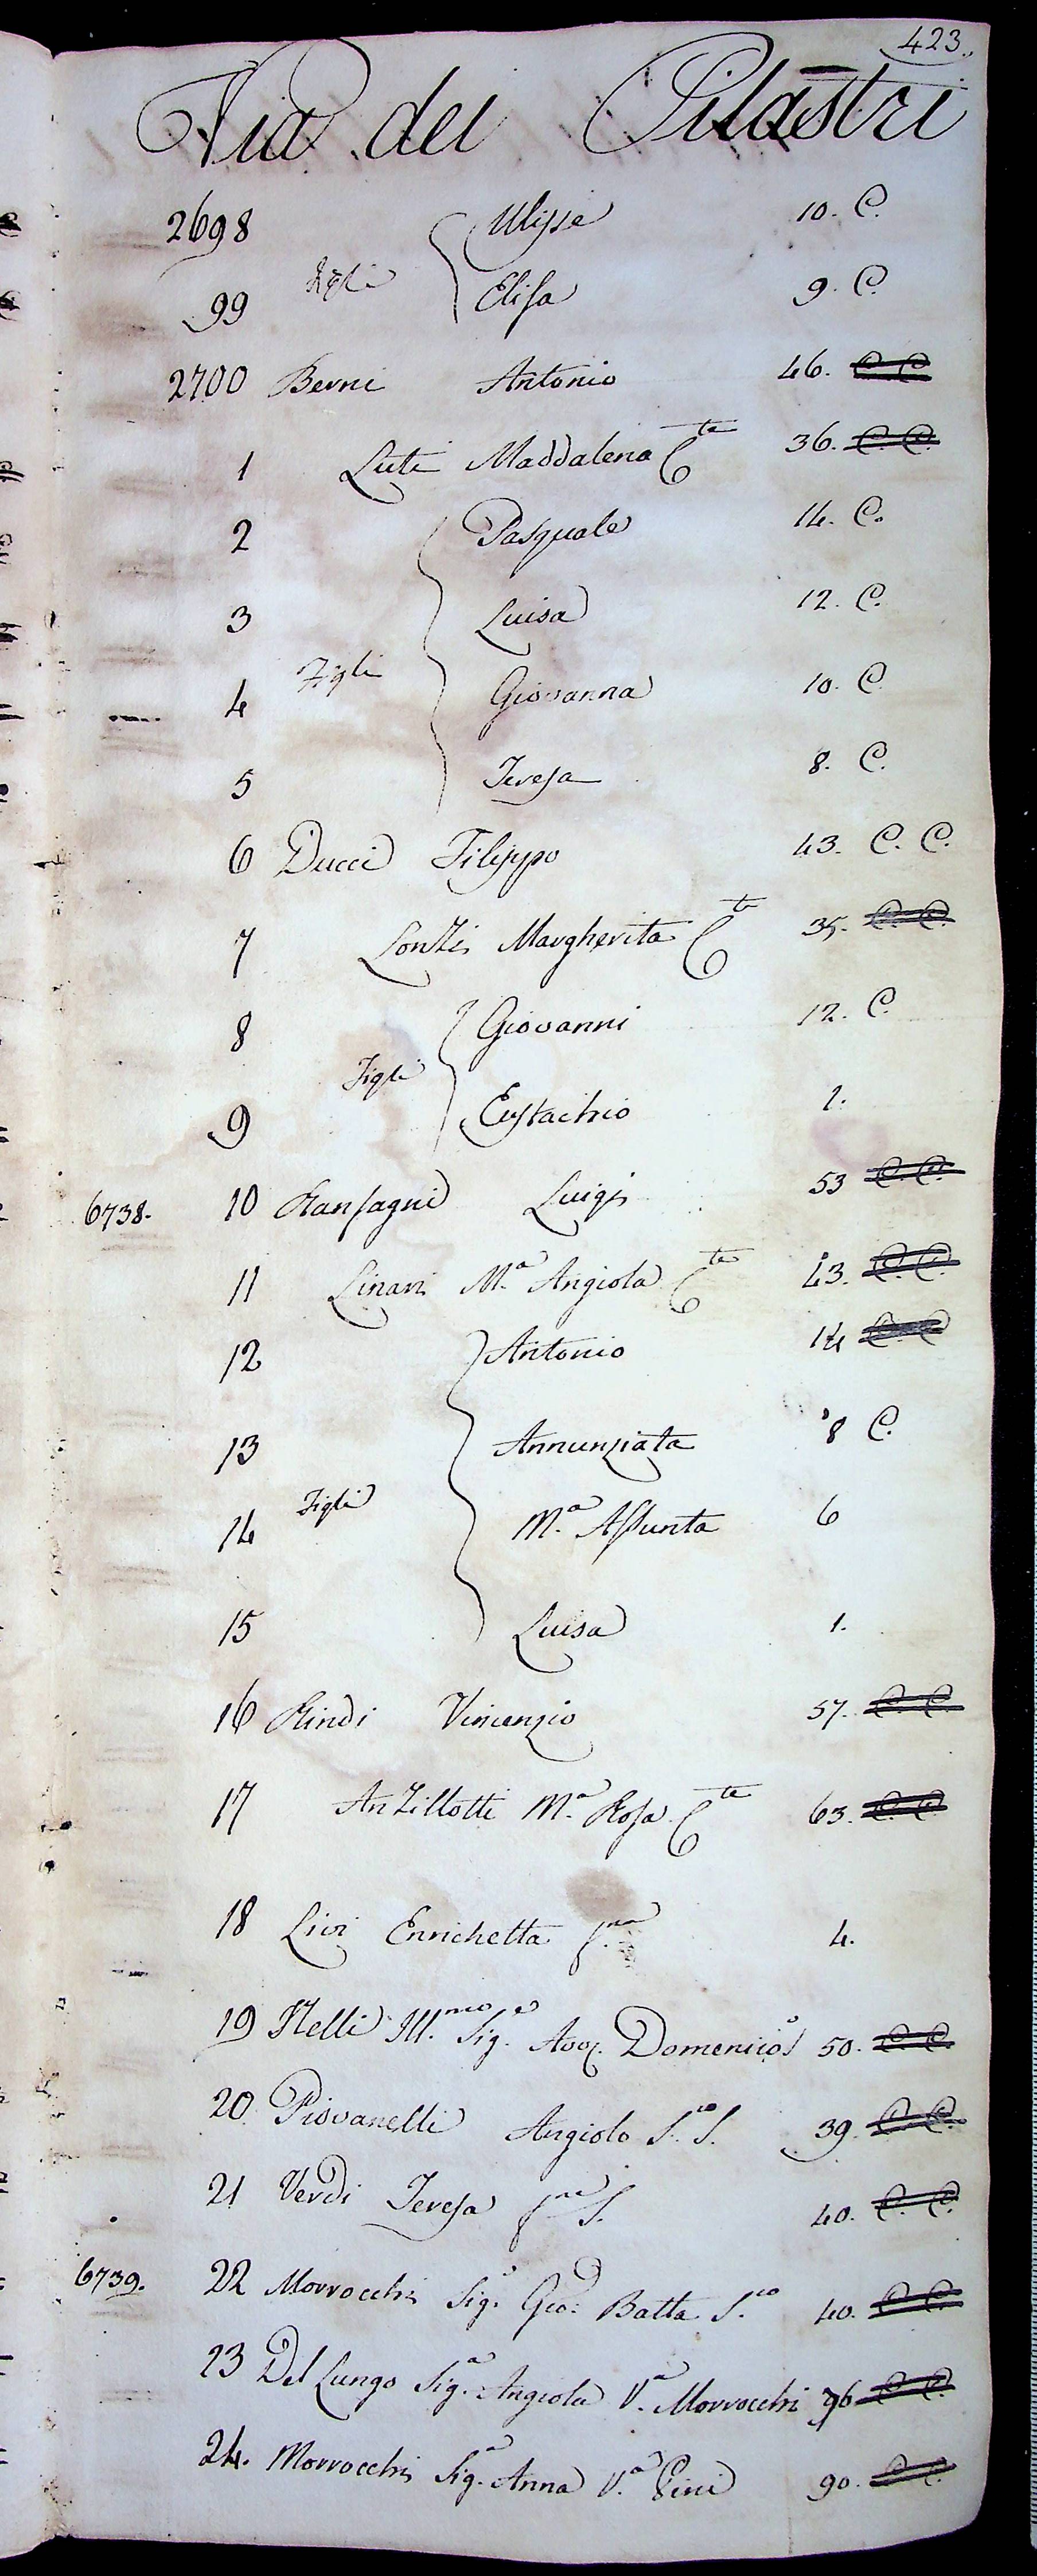 423.
Via dei Pilastri
2698 Ulisse 10. C.
99 Figli Elisa 9. C.
2700 Berni Antonio 46. C. C.
1 Luti Maddalena Cta 36. C. C.
2 Pasquale 14. C.
3 Luisa 12. C.
4 Figli Giovanna 10. C.
5 Teresa 8. C.
6 Ducci Filippo 43. C. C.
7 Margherita Cta 35. C. C.
8 Giovanni 12. C.
9 Figli Eustachio 1.
6738. 10 Ranfagni Luigi 53 C. C.
11 Linari Ma. Angiola Cta 43. C. C.
12 Antonio 14 C. C.
13 Annunziata 8 C.
14 Figli Ma. Assunta 6
15 Luisa 1.
16 Rindi Vincenzio 57. C. C.
17 Anzillotti Ma. Rosa Cta 63. C. C.
18 Livi Enrichetta 4.
19 Nelli Ill.mo Sig.e Avv. Domenico 50. C. C.
20 Piovanelli Angiolo S.o S. 39. C. C.
21 Verdi Teresa S. 40. C. C.
6739. 22 Morrocchi Sig. Gio: Batta S.co 40. C. C.
23 Del Lungo Sig.a Angiola V.a Morrocchi 76 C. C.
24. Morrocchi Sig.a Anna V.a Pini 90. C. C.